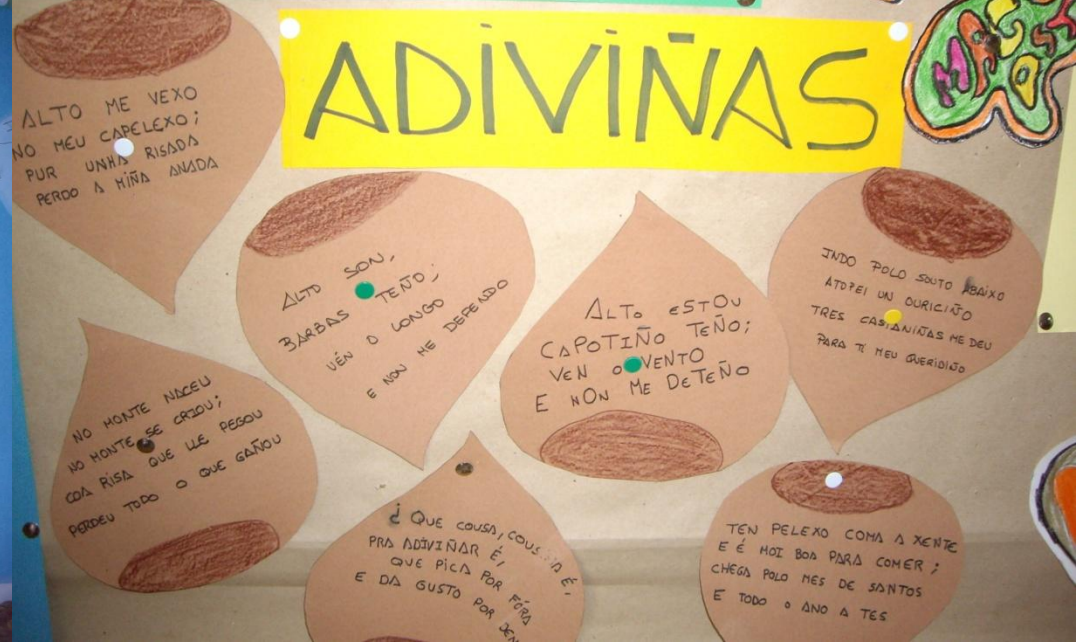 ADIVIÑAS
ALTO ME VEXO
NO MEU CAPELEXO;
PUR UNHA RISADA
PERDO A MIÑA ANADA
ALTO SON,
BARBAS TEÑO;
VÉN O LONGO
E NON ME DEFENDO
ALTO ESTOU
CAPOTIÑO TEÑO;
VEN O VENTO
E NON ME DETEÑO
INDO POLO SOUTO ABAIXO
ATOPEI UN OURICIÑO
TRES CASTANIÑAS ME DEU
PARA TI MEU QUERIDIÑO
NO MONTE NACEU
NO MONTE SE CRIOU;
COA RISA QUE LLE PEGOU
PERDEU TODO O QUE GAÑOU
¿ QUE COUSA, COUSIÑA É,
PRA ADIVIÑAR É,
QUE PICA POR FÓRA
E DA GUSTO POR DEN
TEN PELEXO COMA A XENTE
E É MOI BOA PARA COMER;
CHEGA POLO MES DE SANTOS
E TODO O ANO A TES